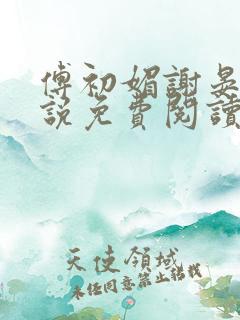 傅初媚謝晏
說免費閱讀
天使領域
未經同意禁止轉載